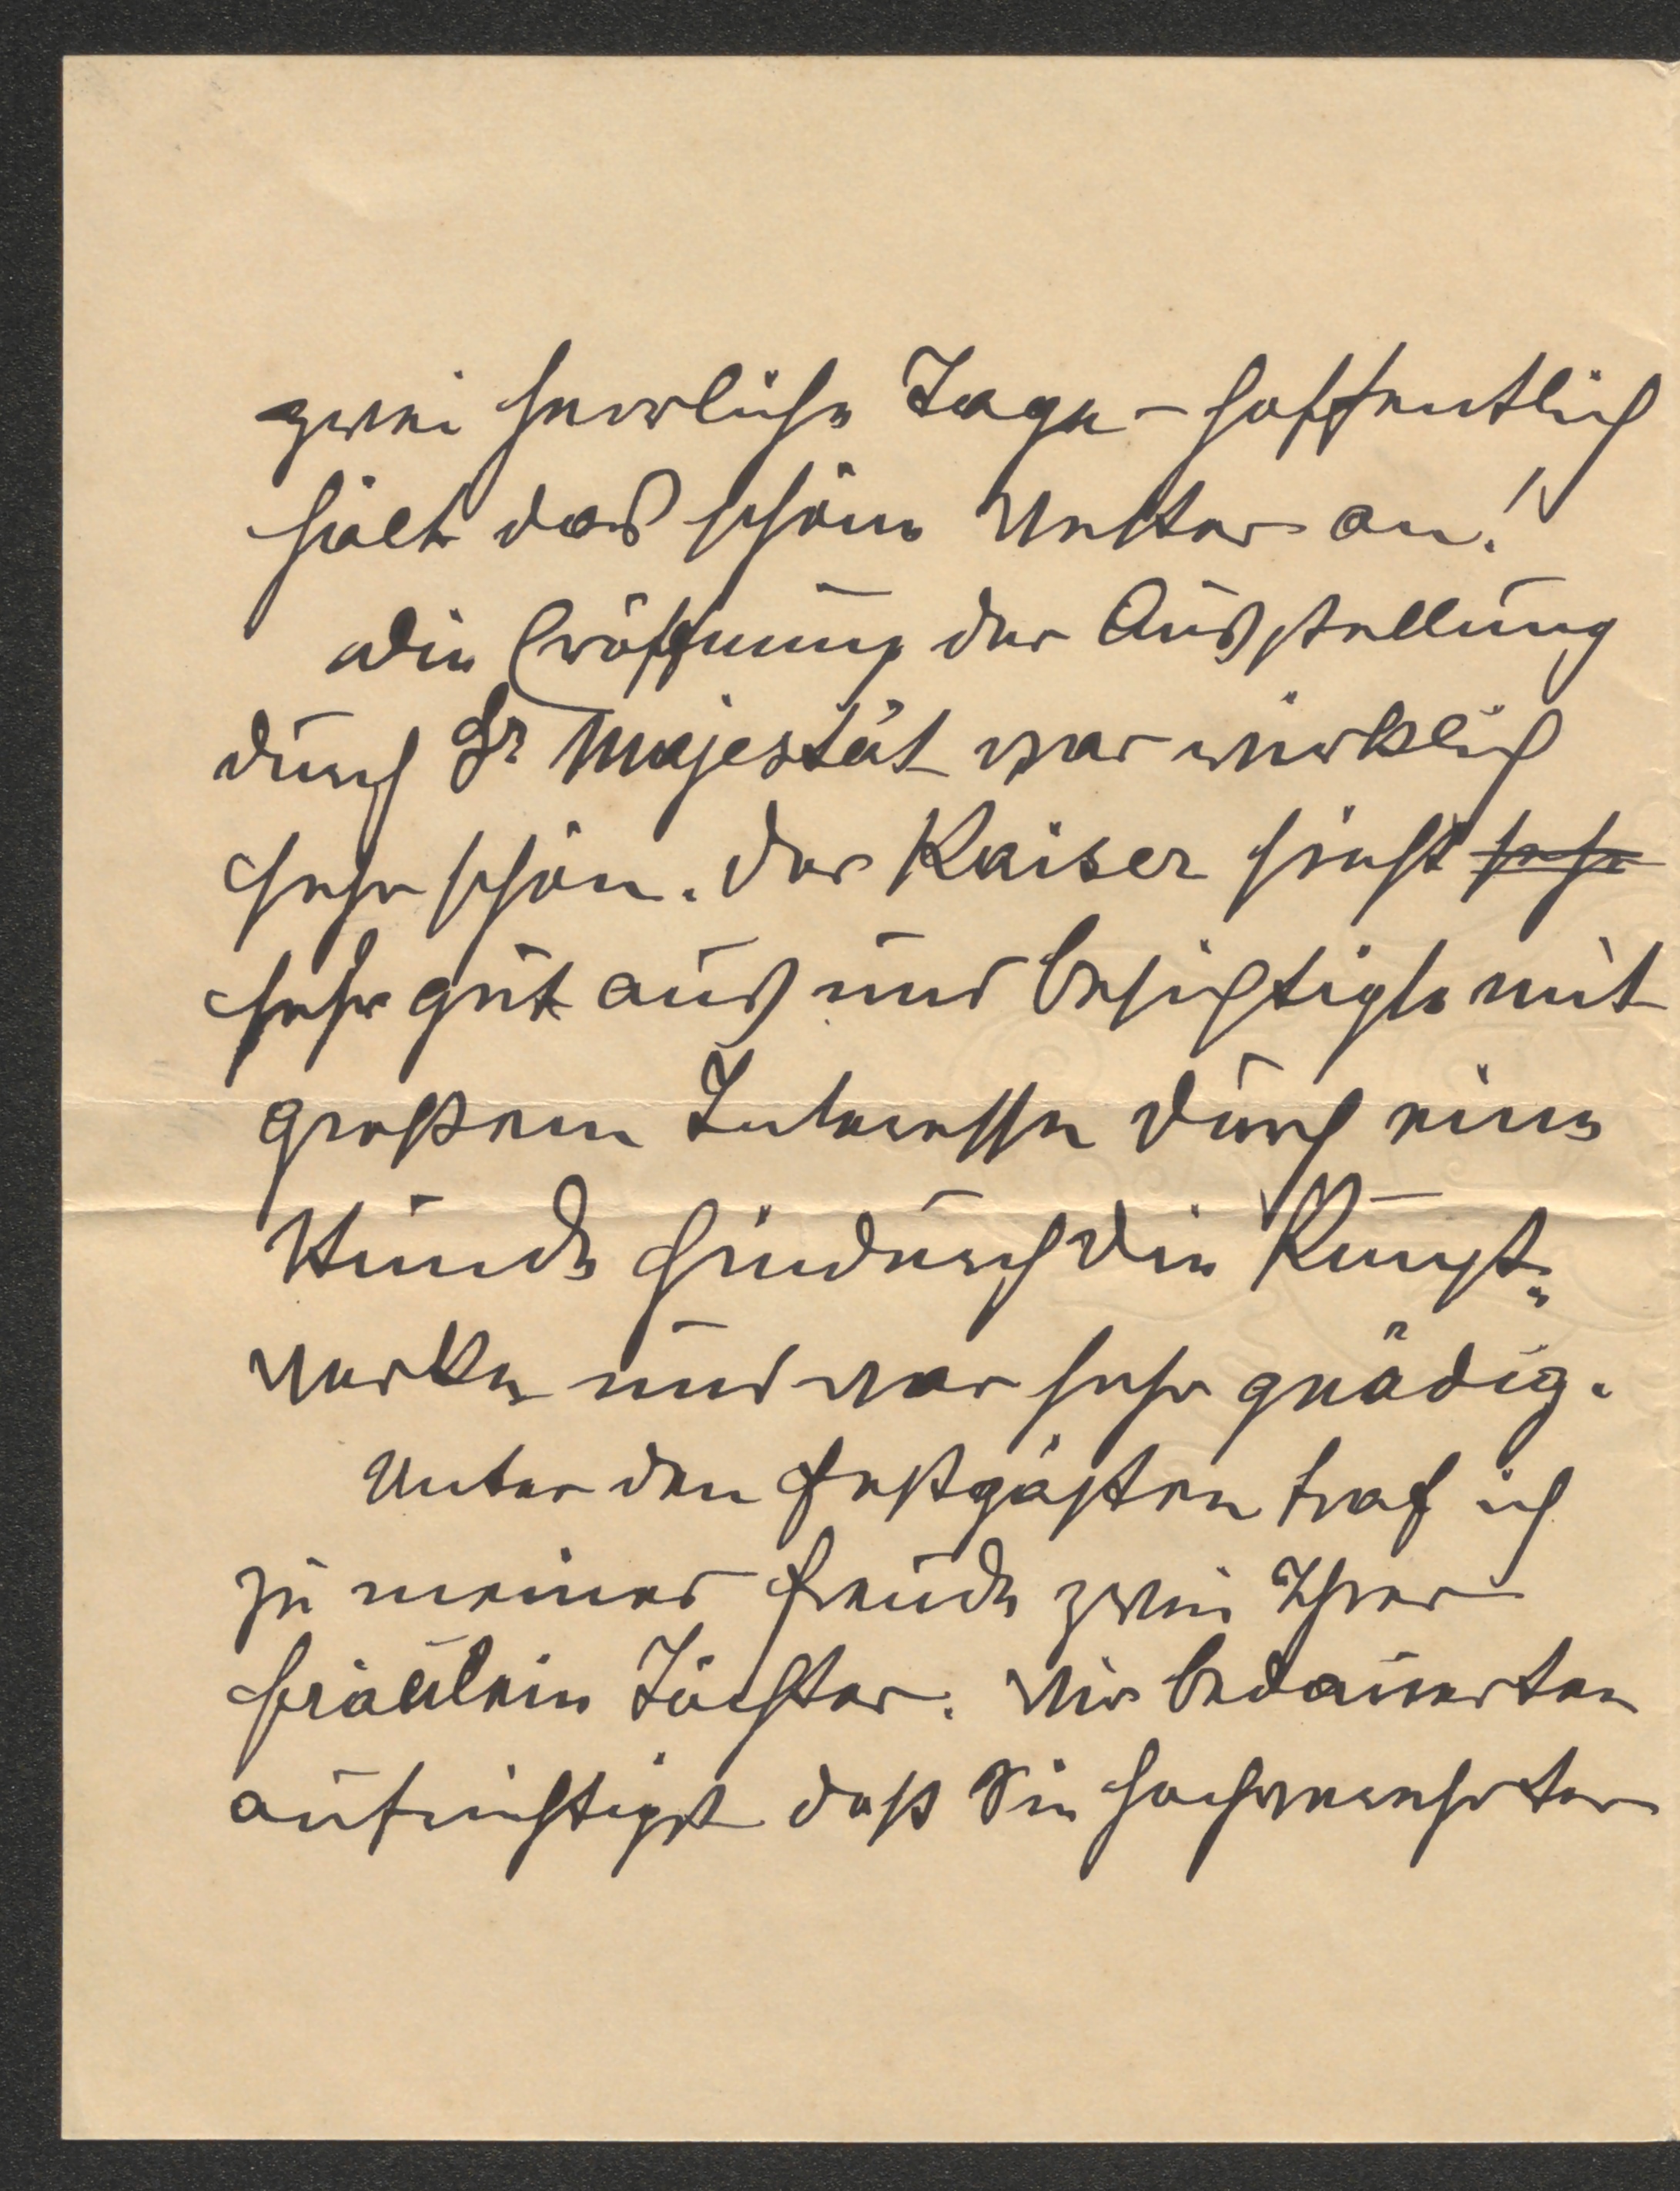 zwei herrliche Tage – hoffentlich
hält das schöne Wetter an!
Die Eröffnung der Ausstellung
durch Sr Majestät war wirklich
sehr schön. Der Kaiser sieht sehr
sehr gut aus und besichtigte mit
großem Interesse durch eine
Stunde hindurch die Kunst„
werke und war sehr gnädig.
Unter den Festgästen traf ich
zu meiner Freude zwei Ihrer
Fräulein Töchter. Wir bedauerten
aufrichtigst daß Sie hochverehrter